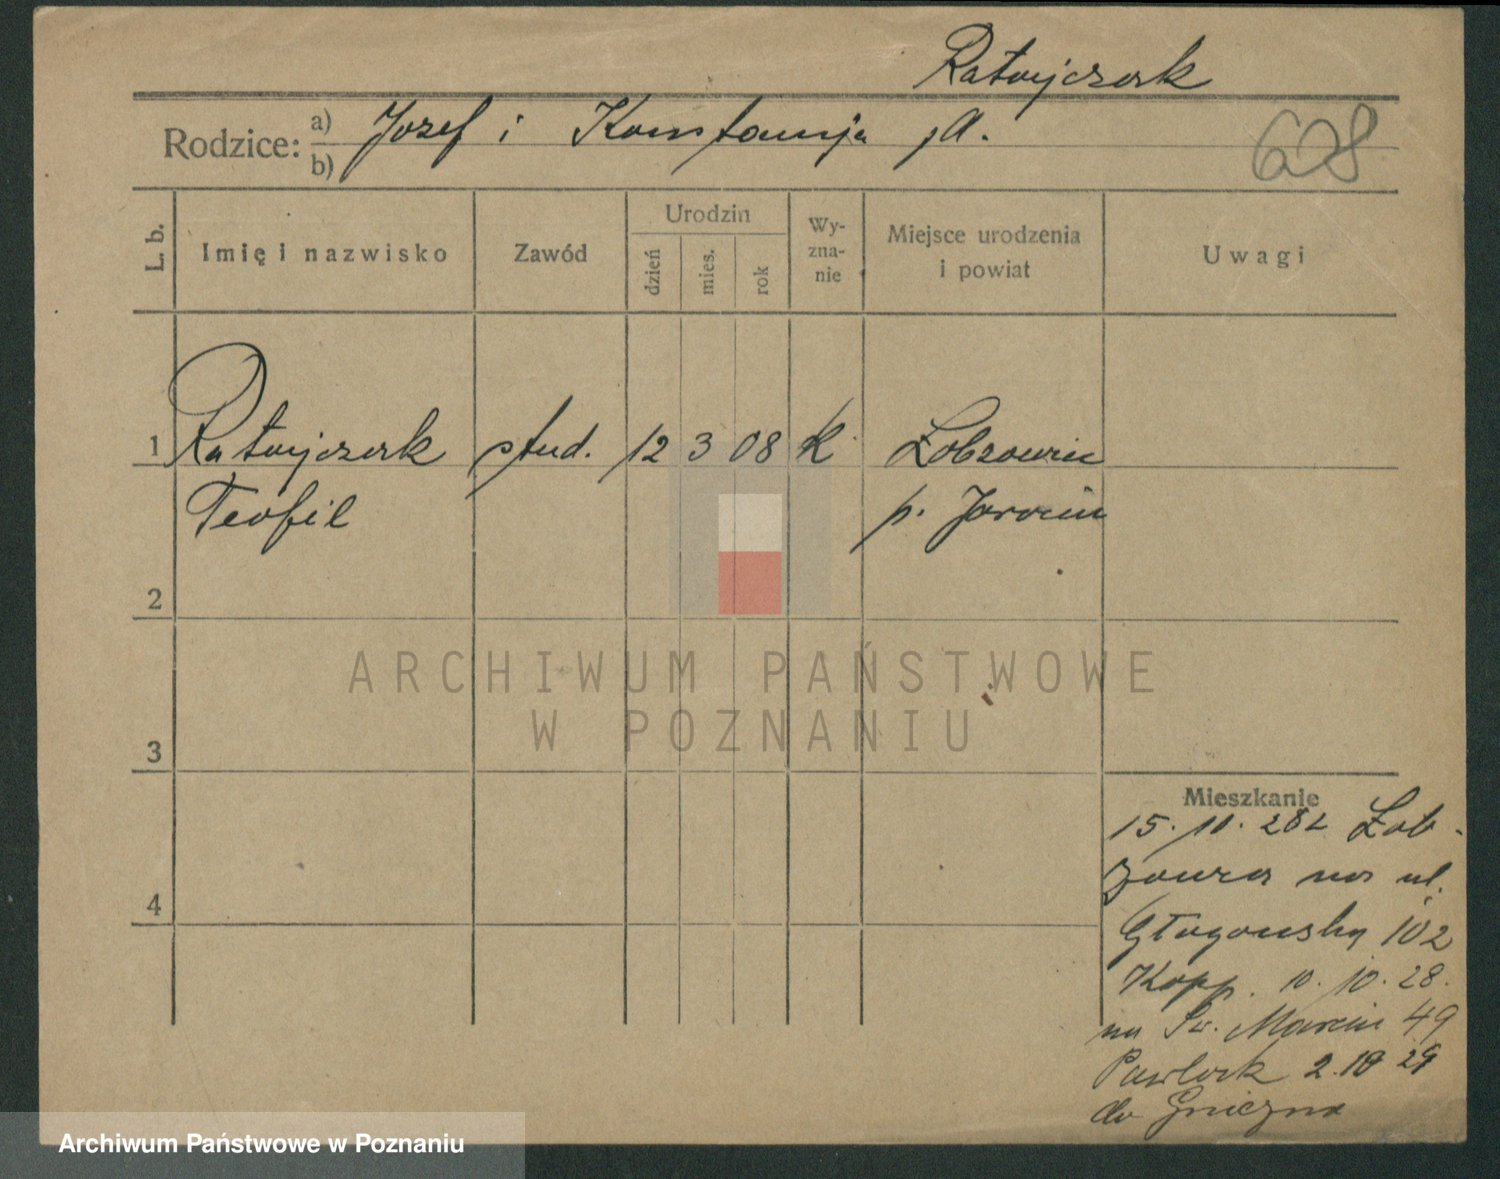 Ratajczak
Rodzice: a) Józef i Konstancja
b)
628
L. b. Imię i nazwisko Zawód Urodzin dzień mies. rok Wy-zna-nie Miejsce urodzenia i powiat Uwagi
1 Ratajczak stud. 12 3 08 k
Teofil p. Jarocin
2
3
4
ARCHIWUM PAŃSTWOWE
W POZNANIU
Mieszkanie
15. 10. 28
na ul.
Głogowską 102
Kopp. 10. 10. 28.
na Św. Marcin 49
Pawlak 2. 10 29
do Gniezna
Archiwum Państwowe w Poznaniu